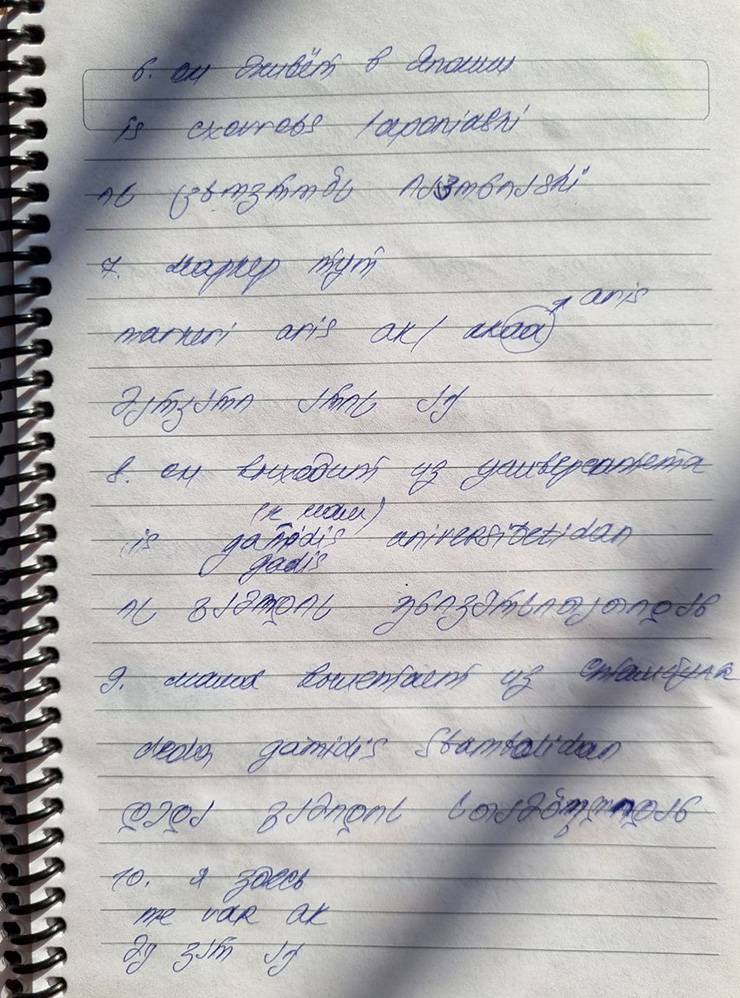 6. он живёт в Японии
is cxovrobs Iaponiashi
ის ცხოვრობს იაპონიაში
7. маркер тут
markeri aris ak/ akaa → aris
მარკერი არის აქ
8. он выходит из университета
(к нам)
is gamodis universitetidan
gadis
ის გამოდის უნივერსიტეტიდან
9. мама вылетает из Стамбула
deda gamidis Stambolidan
დედა გამოდის სტამბოლიდან
10. я здесь
me var ak
მე ვარ აქ